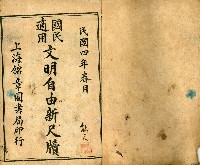 民國四年春月
國民適用
文明自由新尺牘
上海錦章圖書局印行